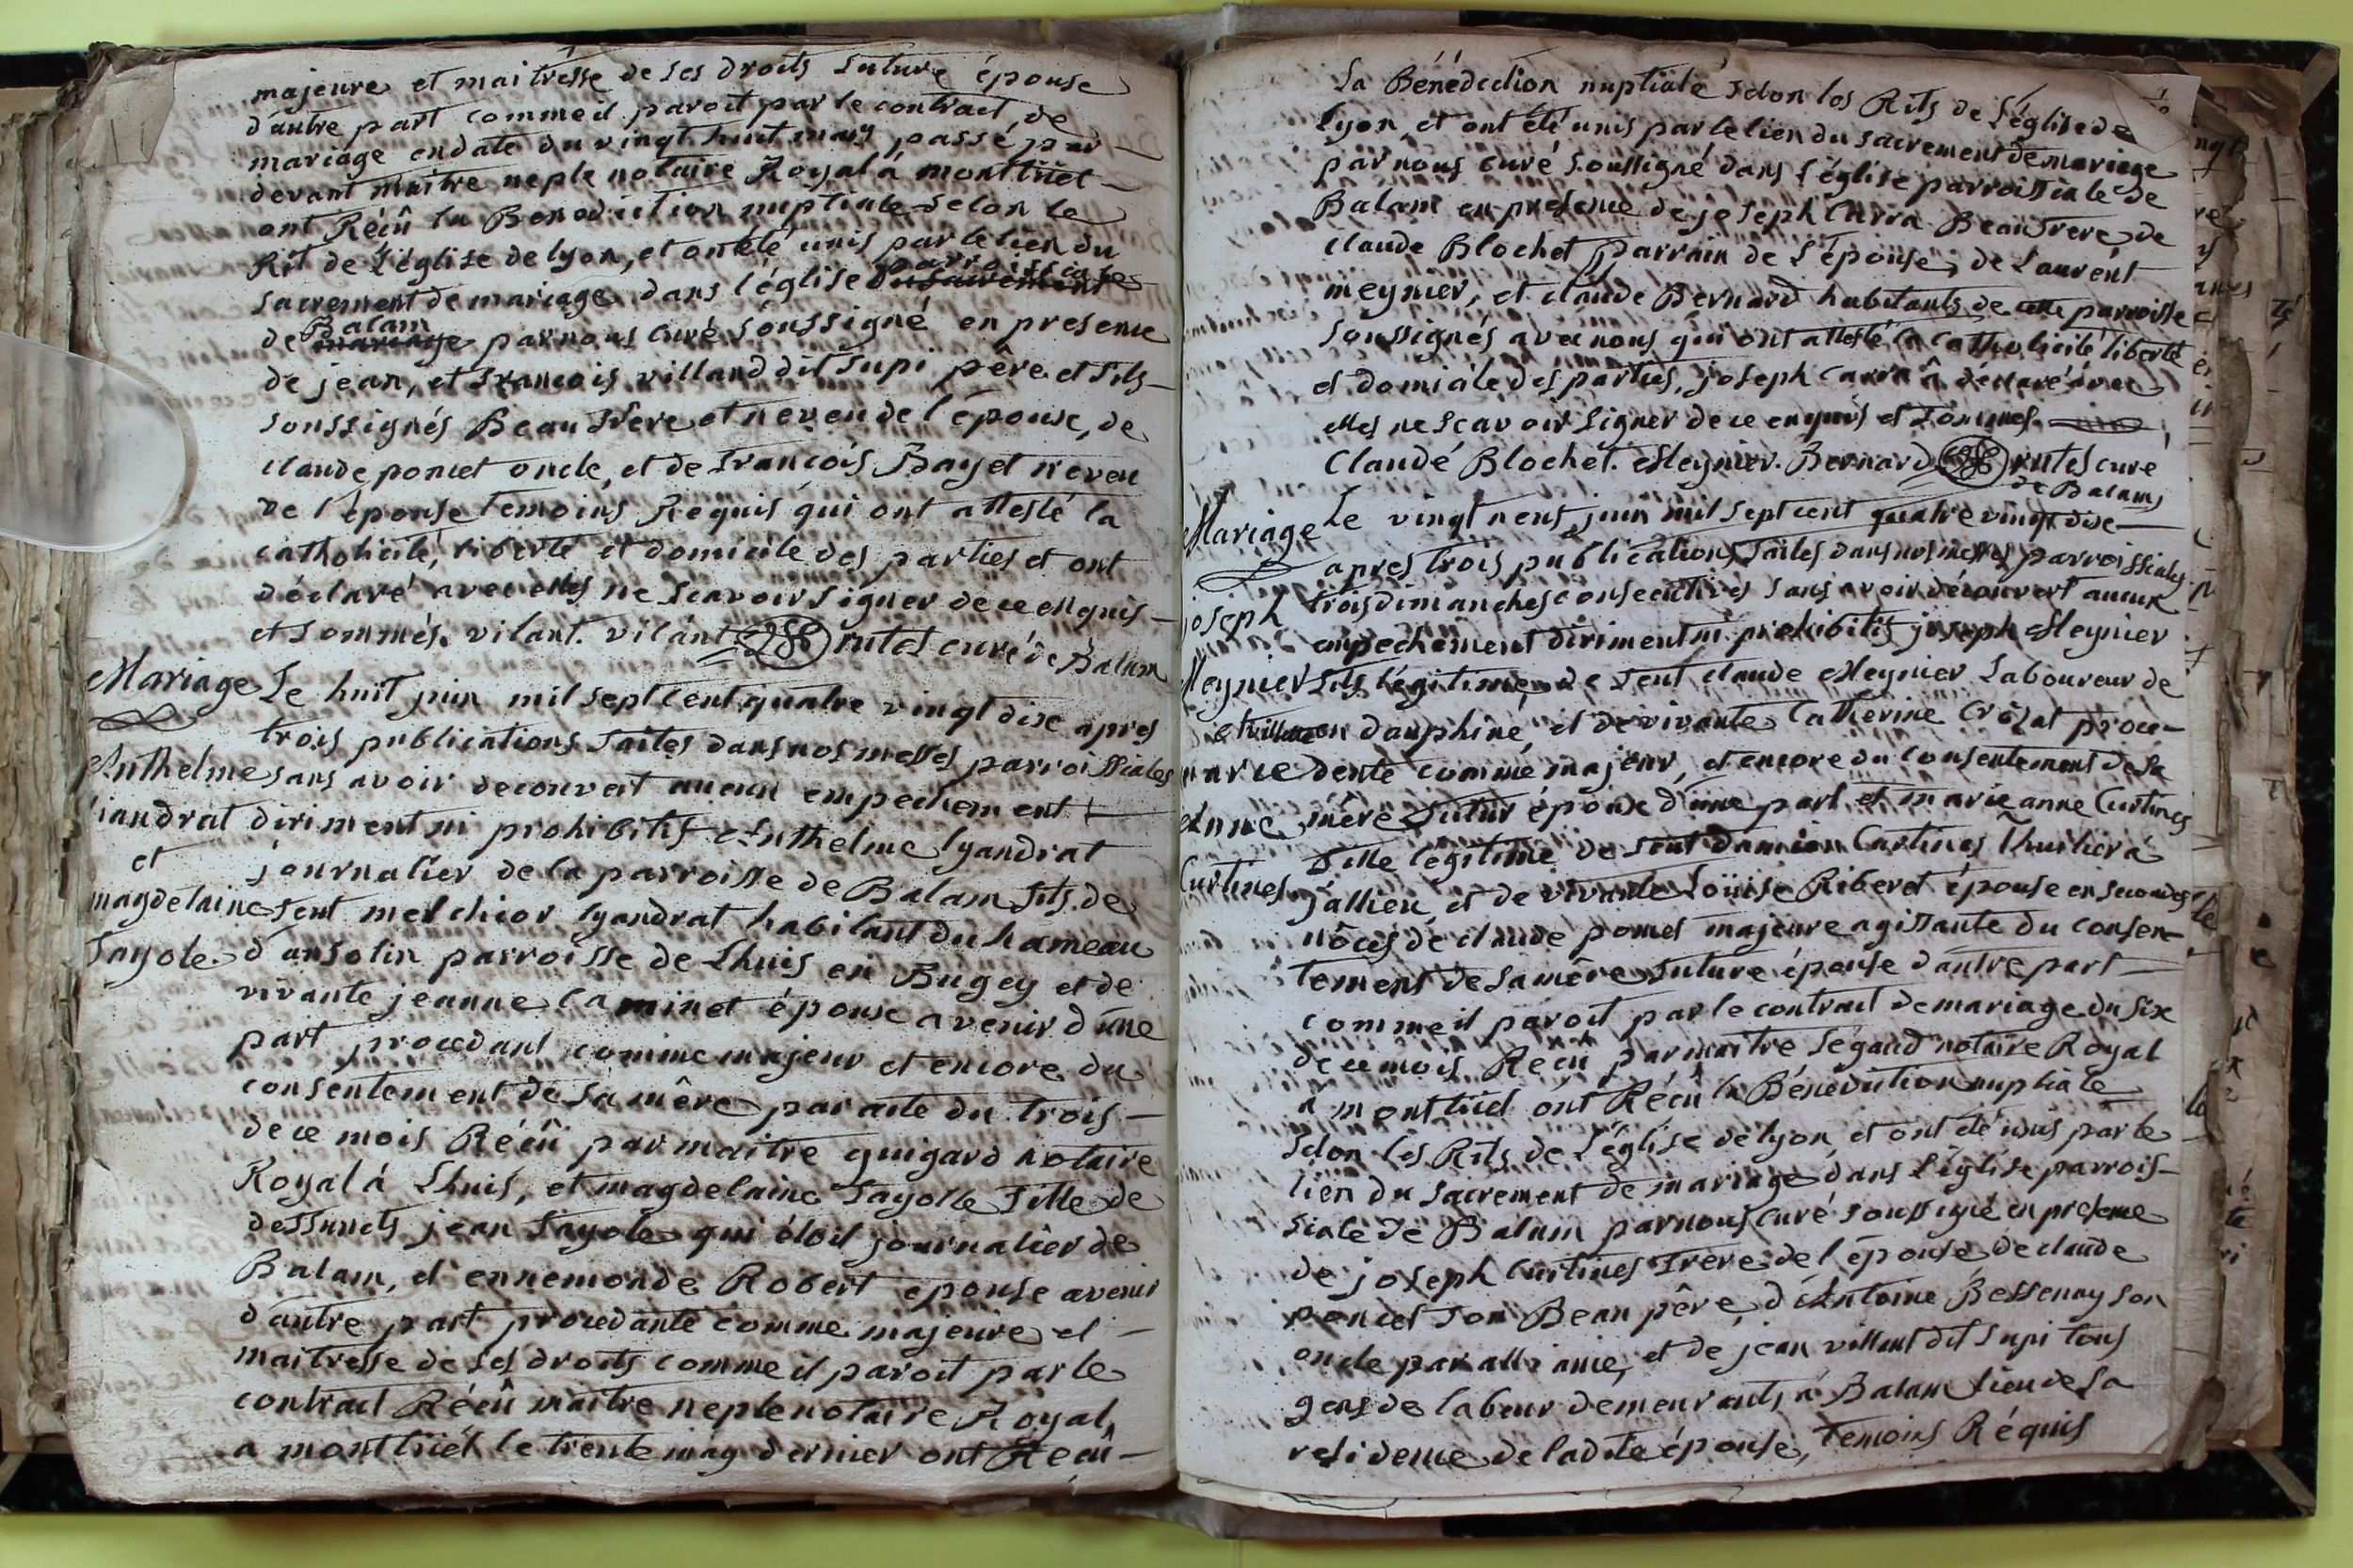 majeure et maitresse de ses droits future épouse
d'autre part comme il paroit par le contract de
mariage en date du vingt huit may passé par
devant maitre neple notaire Royal à montluel
ont Réçû la Benediction nuptiale selon le
Rit de l'église de lyon, et ont été unis par le lien du
sacrement de mariage dans l'église parroissiale
de Balam par nous curé soussigné en presence
de jean, et francois villand dit supi pêre et fils
soussignés Beau frere et neveu de l'épouse, de
claude poncet oncle, et de francois Bayet neveu
de l'épouse temoins Requis qui ont attesté la
catholicité, liberté et domicile des parties et ont
déclaré avec elles ne scavoir signer de ce enquis
et sommés. vilant. vilant rutet curé de Balam
Mariage
Anthelme
liandrat
et
magdelaine
fayole
Le huit juin mil sept cent quatre vingt dix apres
trois publications faites dans nos messes parroissiales
sans avoir decouvert aucun empechement
diriment ni prohibitif Anthelme lyandrat
journalier de la parroisse de Balam fils de
feut melchior lyandrat habitant du hameau
d'ansolin parroisse de Lhuis en Bugey et de
vivante jeanne caminet époux avenir d'une
part procedant comme majeur et encore du
consentement de sa mêre par acte du trois
de ce mois Réçû par maitre guigard notaire
Royal à Lhuis, et magdelaine fayolle fille de
deffuncts jean fayole qui étoit journalier de
Balam, et ennemonde Robert épouse avenir
d'autre part procedante comme majeure et
maitresse de ses droits comme il paroit par le
contract Réçû maitre neple notaire Royal
a montluel le trente may dernier ont Reçû
La Bénédiction nuptiale selon les Rits de l'église de
Lyon, et ont été unis par le lien du sacrement de mariage
par nous curé soussigné dans l'église parroissiale de
Balam en presence de joseph Carra Beau frere de
claude Blochet parrain de l'épouse, de Laurent
meynier, et claude Bernard habitants de cette parroisse
soussignés avec nous qui ont attesté la catholicité liberté
et domicile des parties, joseph carra â déclaré avec
elles ne scavoir signer de ce enquis et sommés
Claude Blochet. Meynier. Bernard rutet curé
de Balam
Mariage
joseph
Meynier
et
marie
Anne
Curtines
Le vingt neuf juin mil sept cent quatre vingt dix
apres trois publications faites dans nos messes parroissiales
trois dimanches consecutives sans avoir découvert aucun
empechement diriment ni prohibitif joseph Meynier
fils légitime de feut claude Meynier Laboureur de
en dauphiné, et de vivante Catherine Crozat proce-
dente comme majeur, et encore du consentement de sa
mêre futur époux d'une part et marie anne Curtines
fille légitime de feut damien Curtines Thuilier à
jallieu, et de vivante Loüise Riberet épouse en secondes
nôces de claude poncet majeure agissante du consen-
tement de sa mêre future épouse d'autre part
comme il paroit par le contract de mariage du six
de ce mois Reçû par maitre Ségaud notaire Royal
a montluel ont Réçû la Bénédiction nuptiale
selon les Rits de l'église de lyon, et ont été unis par le
lien du sacrement de mariage dans l'église parrois-
siale de Balam par nous curé soussigné en presence
de joseph Curtines frere de l'épouse, de claude
poncet son Beau pêre, d'Antoine Bessenay son
oncle par alliance, et de jean villant dit supi tous
gens de labeur demeurants à Balam lieu de la
residence de ladite épouse, temoins Réquis